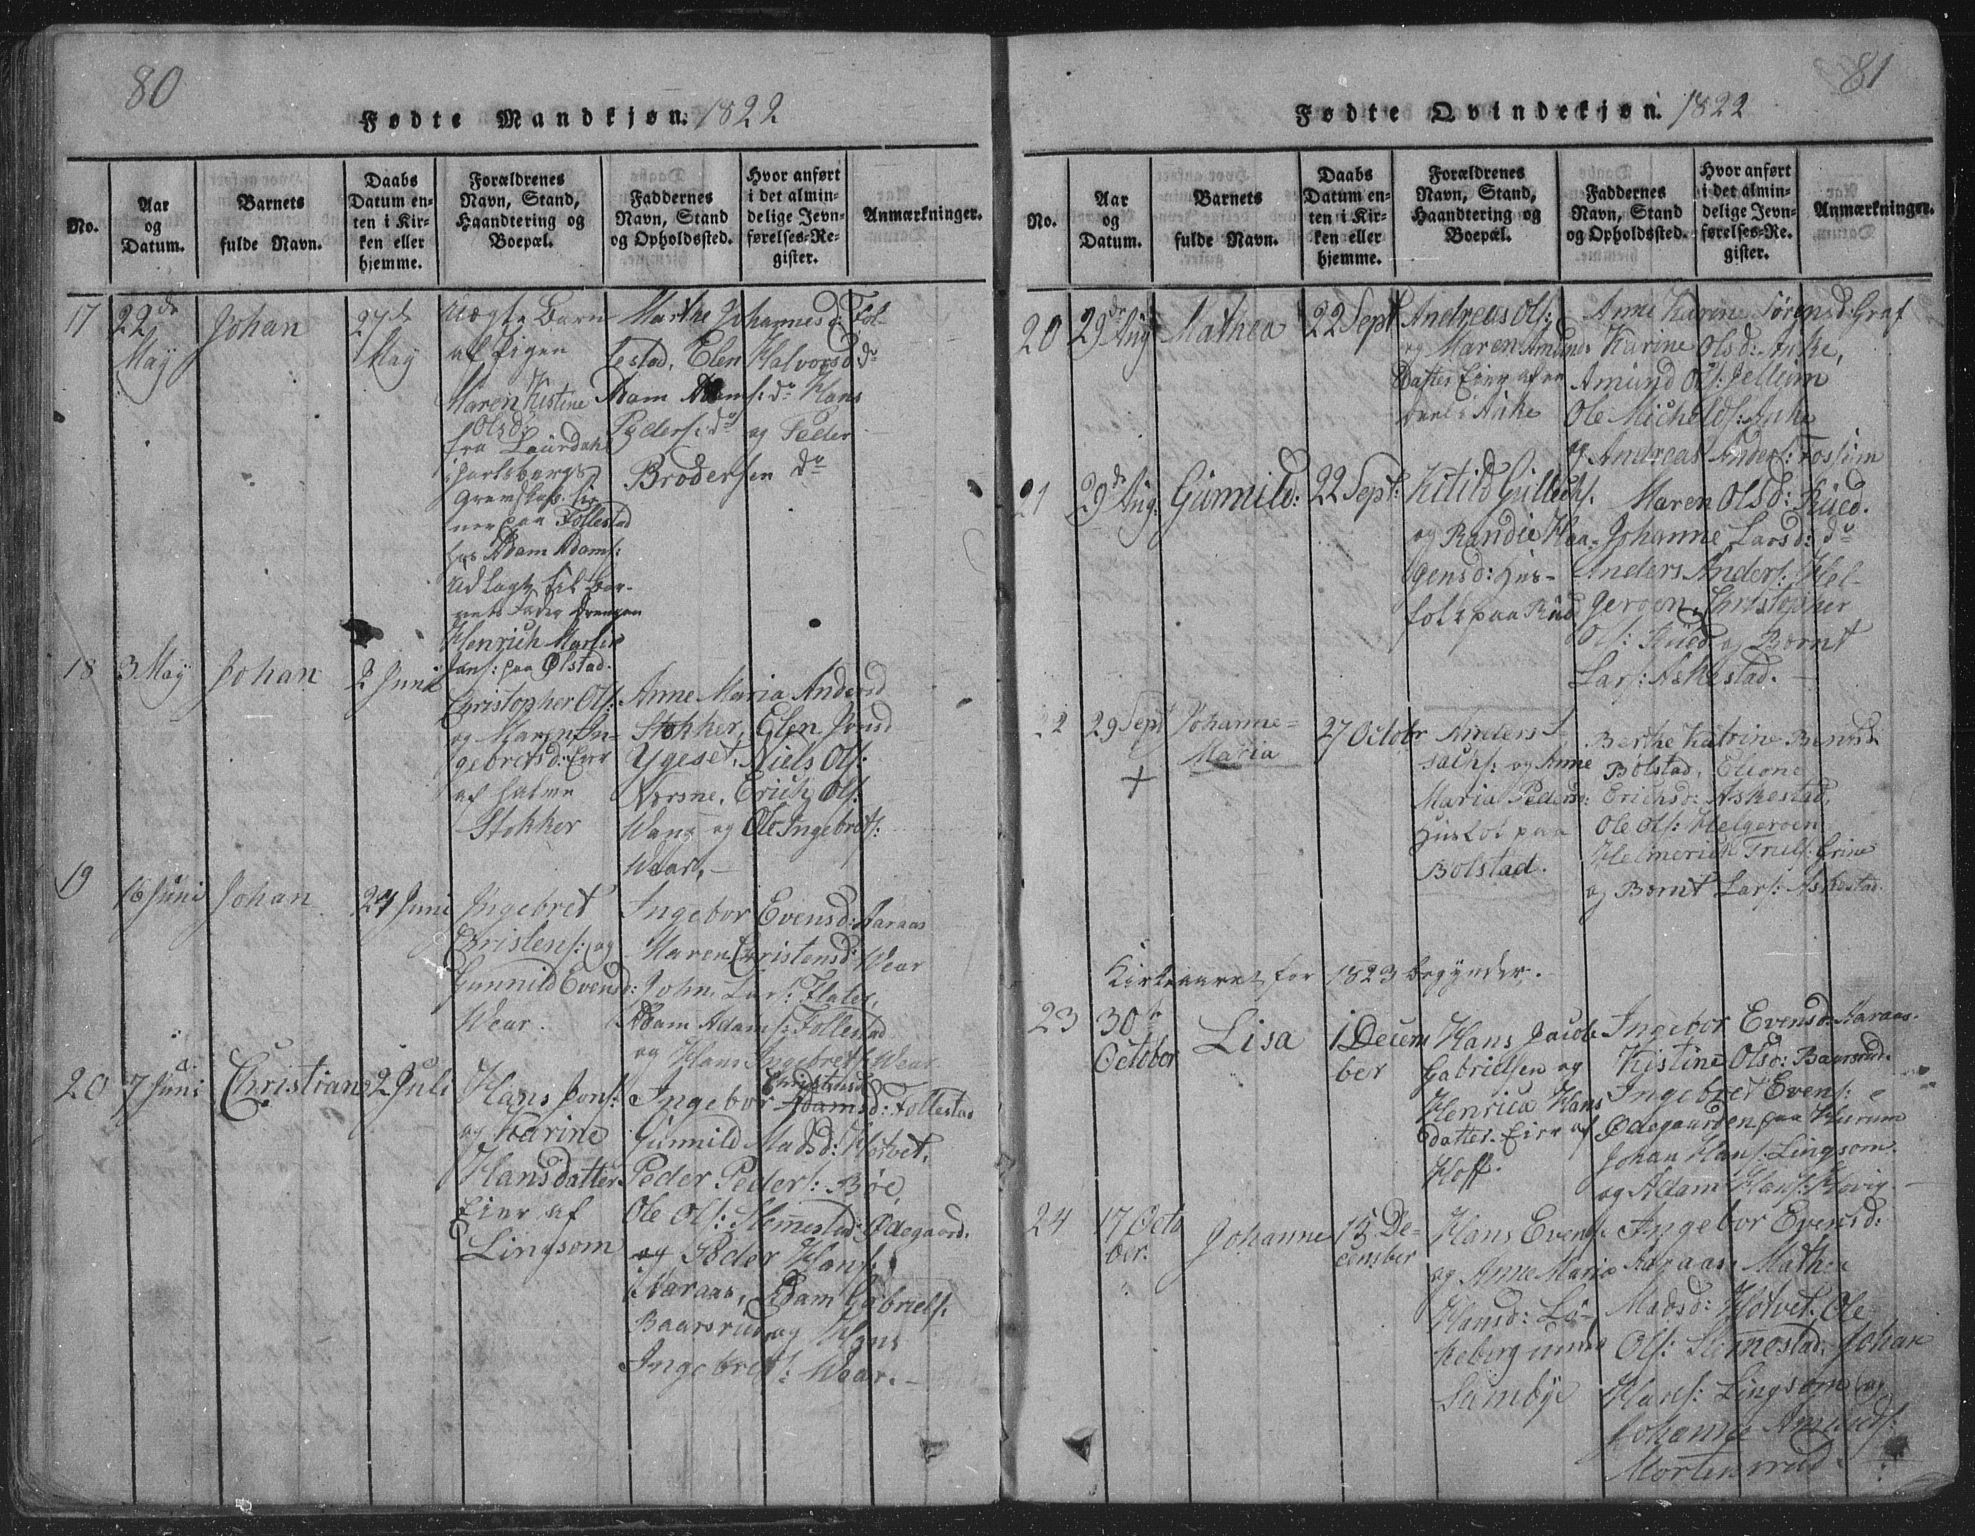 80
Fødte Mandkjøn. 1822
No.
Aar
og
Datum.
Barnets
fulde Navn.
Daabs
Datum en-
ten i Kir-
ken eller
hjemme.
Forældrenes
Navn, Stand,
Haandtering og
Boepæl.
Faddernes
Navn, Stand
og Opholdssted.
Hvor anført
i det almin-
delige Jevn-
førelses-Re-
gister.
Anmærkninger.
17
22de
May
Johan
27de
May
Uægte Barn
af Pigen
Maren Kistine
Olsd:
fra Laurdahl
i Jarlsbergs
Grevskab.
paa Follestad
hos Adam Adams:
Udlagt til Bar-
nets Fader Drengen
Henrich Martin
Jans: paa Ølstad.
Marthe Johannesd: Fol-
lestad, Elen Halvorsd: do
Adam Adams: do Hans
Peders: do og Peder
Brodersen do
18
3 May
Johan
2 Juni
Christopher Ols:
og Maren In-
gebretsd: Eier
af halve
Stokker
Anne Maria Andersd
Stokker, Elen Jonsd
Ygeset, Niels Ols:
Nærsne, Erich Ols:
Wang og Ole Ingebrets:
Wear.
19
16 Juni
Johan
24 Juni
Ingebret
Christens: og
Gunnild Evensd:
Wear.
Ingebor Evensd: Aaraas
Maren Christensd: Wear
John Lars: Flater,
Adam Adams: Follestad
og Hans Ingebrets: Wear
20
7 Juni
Christian
2 Juli
Hans Jons:
og Karine
Hansdatter
Eier af
Lingsom
Christensd
Ingebor Adamsd: Follestad
Gunnild Madsd: Hotvet,
Peder Peders: Böe,
Ole Ols: Slemmestad Ødegaard.
og Peder Hans:
Aaraas, Adam Gabriels:
Baarsrud og Hans
Ingebrets: Wear.
81
Fødte Qvindekjøn. 1822
No.
Aar
og
Datum.
Barnets
fulde Navn.
Daabs
Datum en-
ten i Kir-
ken eller
hjemme.
Forældrenes
Navn, Stand,
Haandtering og
Boepæl.
Faddernes
Navn, Stand
og Opholdssted.
Hvor anført
i det almin-
delige Jevn-
førelses-Re-
gister.
Anmærkninger.
20
29de Aug
Mathea
22 Sept
Andreas Ols:
og Maren Amunds
Datter Eier af en
Deel i Aake
Anne Karine Sørensd: Graf
Karine Olsd: Aake,
Amund Ols: Jelleim
Ole Michels: Aake
og Andreas Anders: Fossum
21
29de Aug:
Gunnild:
22 Sept:
Kitild Gullechs.
og Randie Haa-
gensd: Hus-
folk paa Rud
Maren Olsd: Rued.
Johanne Larsd: do
Anders Anders: Hel-
geroen, Christopher
Ols: Rued og Bernt
Lars: Askestad.
22
29 Sept
Johanne
Maria
+
27 Octobr
Anders
Isachs: og Anne
Maria Pedersd:
Husfol paa
Bolstad.
Berthe Katrine Berntsd
Bolstad, Elione
Erichsd: Askestad,
Ole Ols: Helgeroen
Helmerich Truls: Grine
og Bernt Lars: Askestad.
Kirkeaaret for 1823 begynder.
23
30te
October
Lisa
1 Decem
ber
Hans Jacob
Gabrielsen og
Henrica Hans
datter. Eier af
Hoff.
Ingebor Evensd: Aaraas.
Kistine Olsd: Baarsrud.
Ingebret Evens:
Ødegaarden paa Hurum
Johan Hans: Lingsom.
og Adam Hans: Hovig
24
17 Octo
ber.
Johanne
15 De-
cember
Hans Evens:
og Anne Maria
Hansd: Lö-
keberg under
Sundbye
Ingebor Evensd:
Aaraas, Mathea
Madsd: Hotvet, Ole
Ols: Slemestad, Johan
Hans: Lingsom og
Johanne Amunds:
Mortensrud.